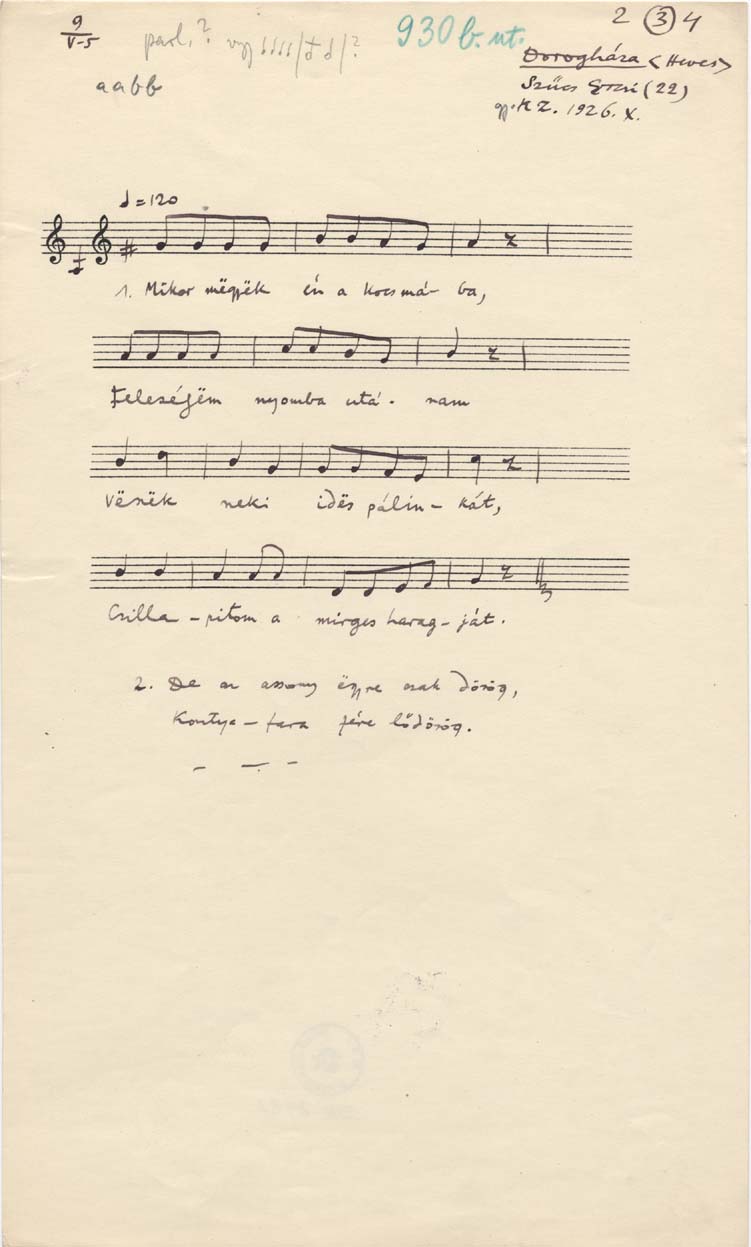 9
V-5
parl.? vagy
930 b. ut.
2 3 4
aabb
Dorogháza (Heves)
Szűcs (22)
gy. KZ. 1926. X.
=120
1. Mikor mëgyëk én a kocsmá- ba,
Feleségëm nyomba utá- nam
Vëszëk neki idës pálin- kát,
Csilla -pitom a mirges harag- ját.
2. De az asszony ëgyre csak dörög,
Kontya- fara lődörög.